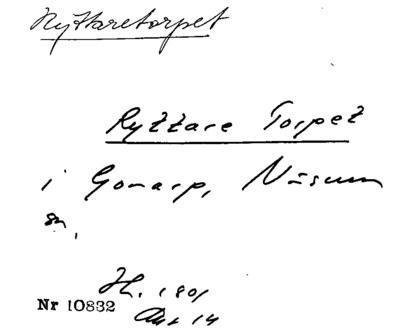 Ryttaretorpet
Ryttare Torpet
i Gonarp, Näsum
sn.
H. 1801
Nr 10832
14